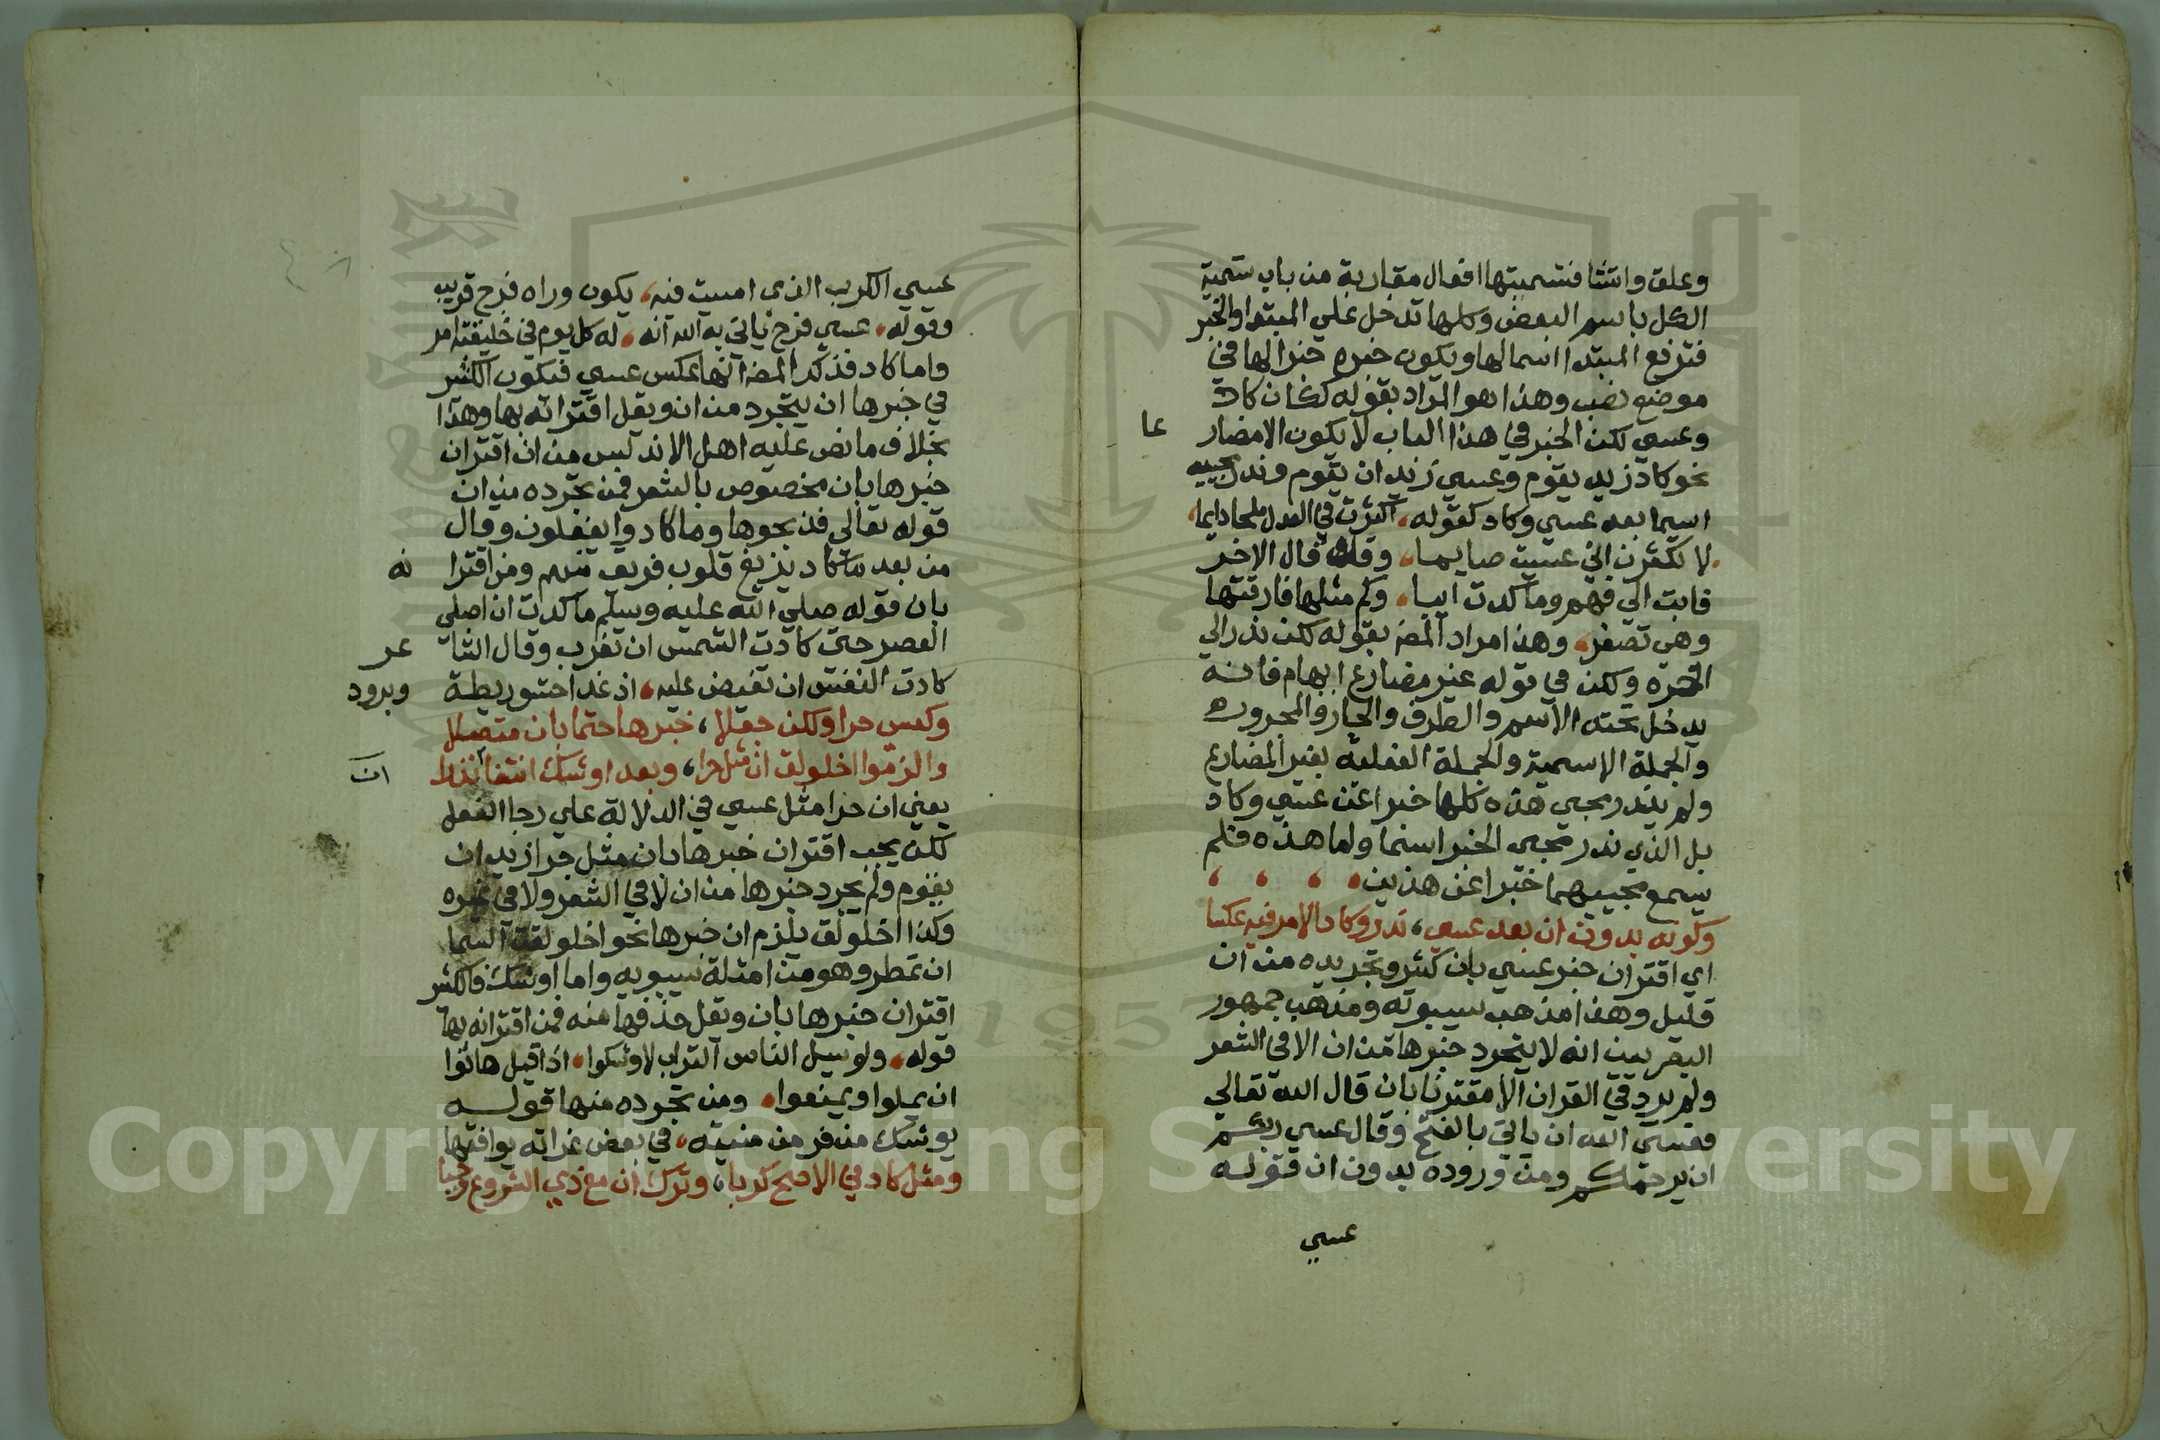 وعلق وانشا فتسميتها افعال مقاربة من باب تسمية
الكل باسم البعض وكلها تدخل علي المبتدا والخبر
فترفع المبتدا اسما لها ويكون خبره خبرا لها في
موضع نصب وهذا هو المراد بقوله ككان كاد
وعسي لكن الخبر في هذا الباب لا يكون الا مضار عا
نحو كاد زيد يقوم وعسي زيد ان يقوم وندر مجييه
اسما بعد عسي وكاد كقوله اكثرت في العدل ملحا دايما
لا تكثرن اني عسيت صايما وقال الاخر
فابت الي فهم وما كدت ايبا وكم مثلها فارقتها
وهي تصفر وهذا مراد المص بقوله لكن ندر الي
اخره ولكن في قوله غير مضارع ابهام فانه
يدخل تحته الاسم والظرف والجار والمجرور
والجملة الاسمية والجملة الفعلية بغير المضارع
ولم يندر مجي هذه كلها خبرا عن عسي وكاد
بل الذي ندر مجي الخبر اسما واما هذه فلم
يسمع مجييها خبرا عن هذين
وكونه بدون ان بعد عسي ، نزر وكاد الامر فيه عكسا
اي اقتران خبر عسي بان كثير وتجريده من ان
قليل وهذا مذهب سيبويه ومذهب جمهور
البصريين انه لا يتجرد خبرها من ان الا في الشعر
ولم يرد في القران الا مقترنا بان قال الله تعالي
فعسي الله ان ياتي بالفتح وقال عسي ربكم
ان يرحمكم ومن وروده بدون ان قوله
عسي
عسي الكرب الذي امسيت فيه ، يكون وراه فرج قريب
وقوله عسي فرج ياتي به الله انه له كل يوم في خليقته امر
واما كاد فذكر المص انها عكس عسي فيكون الكثير
في خبرها ان يتجرد من ان ويقل اقترانه بها وهذا
بخلاف ما نص عليه اهل الاندلس من ان اقتران
خبرها بان مخصوص بالشعر فمن تجرده من ان
قوله تعالي فذبحوها وما كادوا يفعلون وقال
من بعد ما كاد يزيغ قلوب فريق منهم ومن اقترا نه
بان قوله صلي الله عليه وسلم ما كدت ان اصلي
العصر حتي كادت الشمس ان تغرب وقال الشا عر
كادت النفس ان تفيض عليه اذ غدا حشو ريطة وبرود
وكعسي حرا ولكن جعلا ، خبرها حتما بان متصلا
والزموا اخلولق ان مثل حرا ، وبعد اوشك انتفا نذرا ان
يعني ان حرا مثل عسي في الدلالة علي رجا الفعل
لكن يجب اقتران خبرها بان مثل حرا زيد ان
يقوم ولم يجرد خبرها من ان لا في الشعر ولا في غيره
وكذا اخلولق يلزم ان خبرها نحو اخلولقت السما
ان تمطر وهو من امثلة سيبويه واما اوشك فالكثير
اقتران خبرها بان ويقل حذفها منه فمن اقترانه بها
قوله ولو سيل الناس التراب لاوشكوا اذا قيل هاتوا
ان يملوا ويمنعوا ومن تجرده منها قوله
يوشك من فر من منيته ، في بعض غراته يوافقها
ومثل كاد في الاصح كربا ، وترك ان مع ذي الشروع وجبا